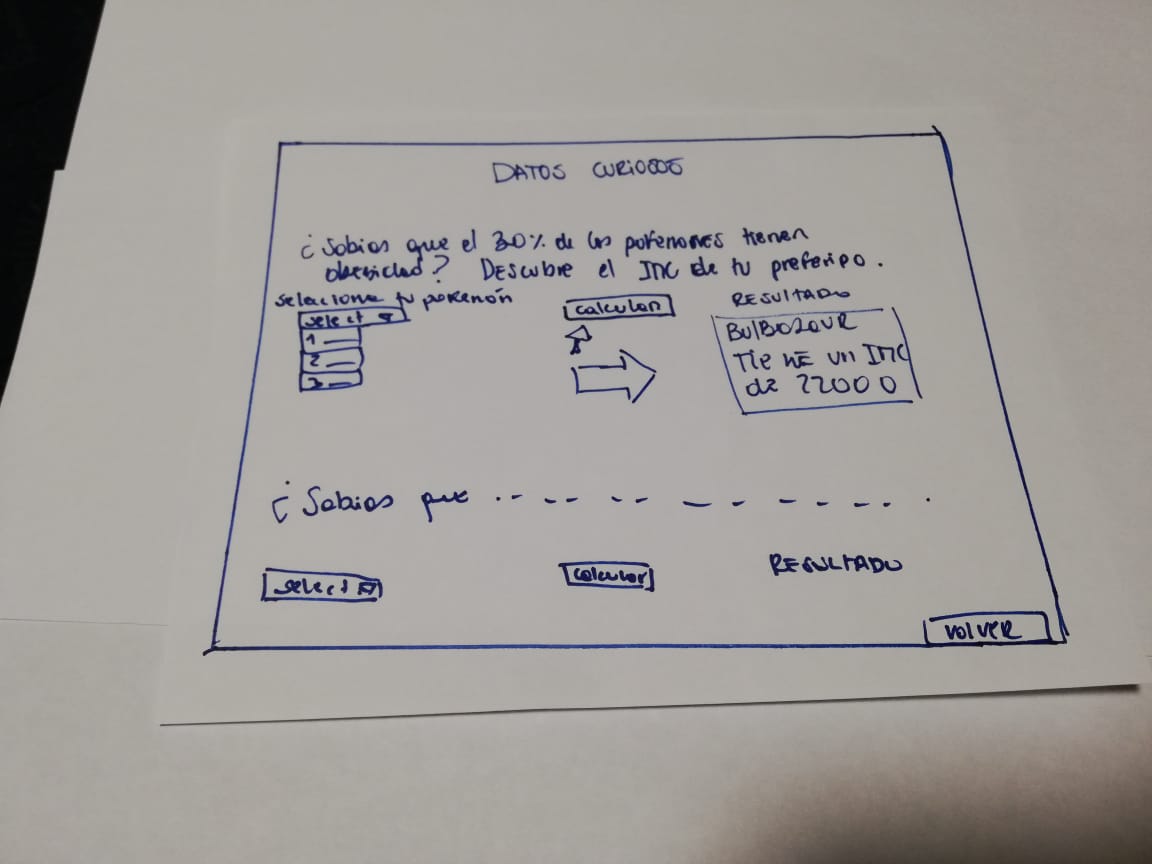 DATOS CURIOSOS
¿Sabias que el 30% de los pokemones tienen
obesidad? Descubre el IMC de tu preferipo.
selecciona tu pokemón
calcular
RESULTADO
select
1
2
3
BULBOZAUR
TIENE UN IMC
de 22000
¿Sabias que
select
calcular
RESULTADO
VOLVER